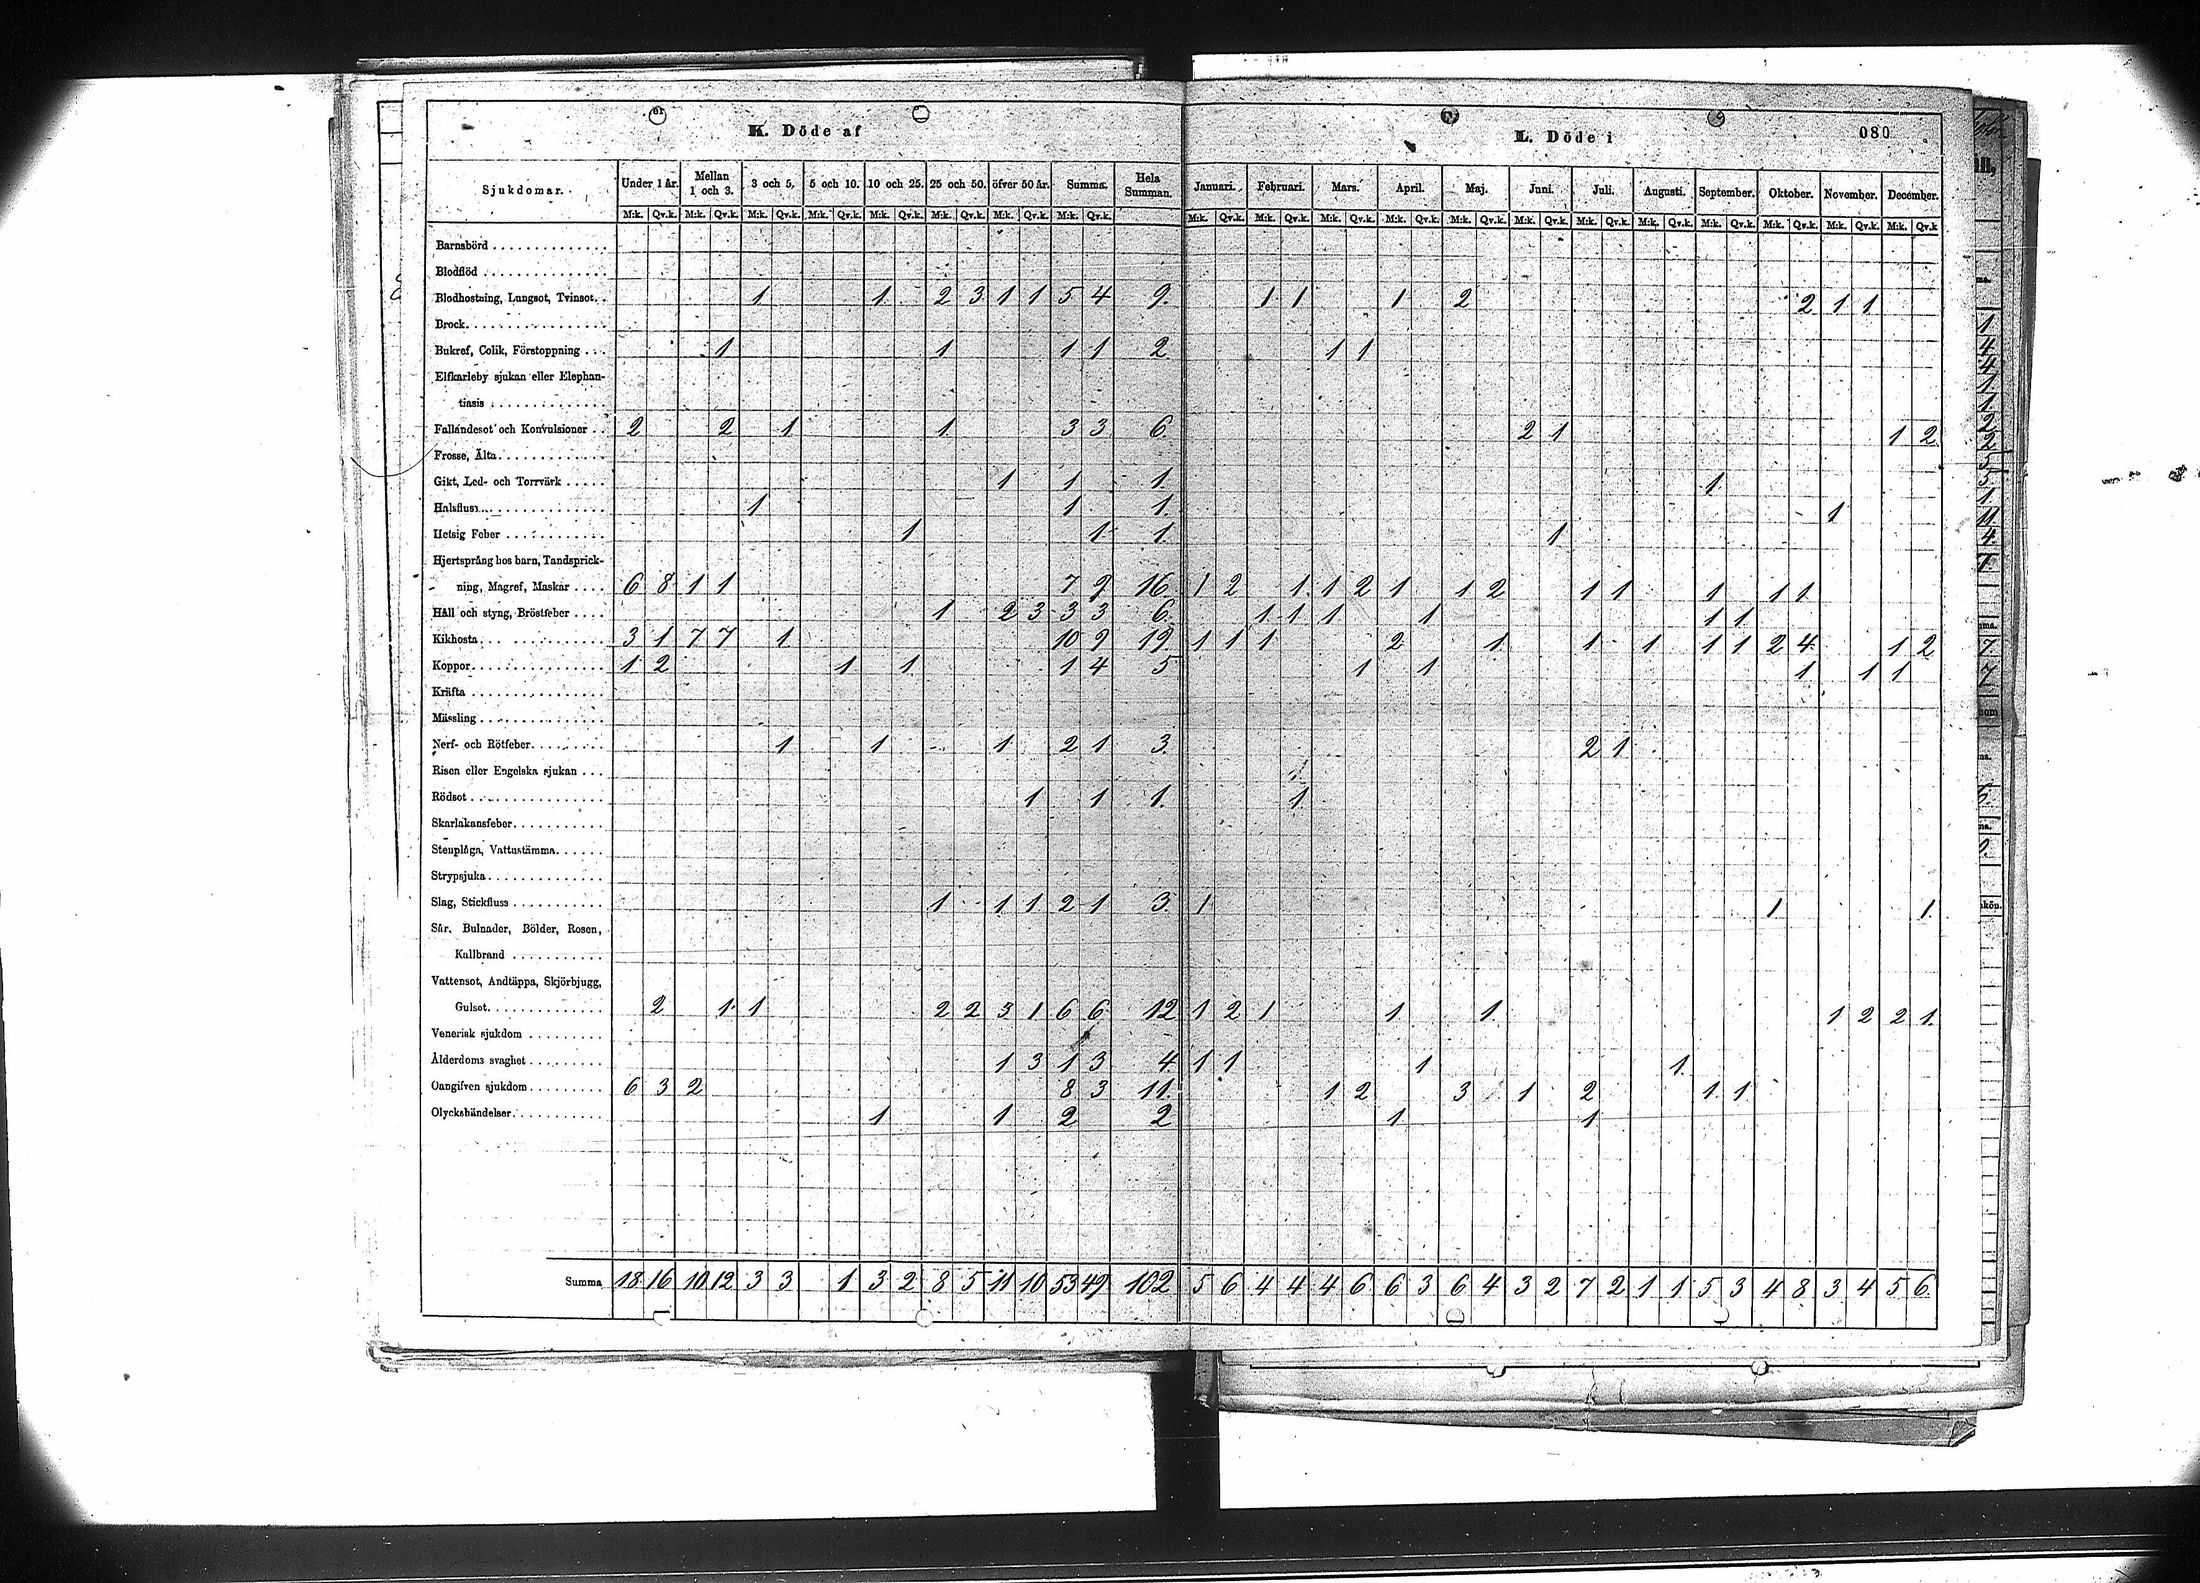 K. Döde af
L. Döde i 080
Sjukdomar. Under 1 år. Mellan 1 och 3. 3 och 5. 5 och 10. 10 och 25. 25 och 50. öfver 50 år. Summa. Hela Summan. Januari. Februari. Mars. April. Maj. Juni. Juli. Augusti. September. Oktober. November. December.
M:k. Qv.k. M:k. Qv.k. M:k. Qv.k. M:k. Qv.k. M:k. Qv.k. M:k. Qv.k. M:k. Qv.k. M:k. Qv.k. M:k. Qv.k. M:k. Qv.k. M:k. Qv.k. M:k. Qv.k. M:k. Qv.k. M:k. Qv.k. M:k. Qv.k. M:k. Qv.k. M:k. Qv.k. M:k. Qv.k. M:k. Qv.k. M:k. Qv.k
Barnsbörd
Blodflöd
Blodhostning, Lungsot, Tvinsot. 1 1 2 3 1 1 5 4 9. 1 1 1 2 2 1 1
Brock
Bukref, Colik, Förstoppning 1 1 1 1 2 1 1
Elfkarleby sjukan eller Elephan-
tiasis
Fallandesot och Konvulsioner 2 2 1 1 3 3 6. 2 1 1 2
Frosse, Älta
Gikt, Led- och Torrvärk 1 1 1. 1
Halsfluss 1 1 1. 1
Hetsig Feber 1 1 1. 1
Hjertsprång hos barn, Tandsprick-
ning, Magref, Maskar 6 8 1 1 7 9 16 1 2 1 1 2 1 1 2 1 1 1 1 1
Håll och styng, Bröstfeber 1 2 3 3 3 6. 1 1 1 1 1 1
Kikhosta 3 1 7 7 1 10 9 19 1 1 1 2 1 1 1 1 1 2 4 1 2
Koppor 1 2 1 1 1 4 5 1 1 1 1 1
Kräfta
Mässling
Nerf- och Rötfeber 1 1 1 2 1 3. 2 1
Risen eller Engelska sjukan
Rödsot 1 1 1. 1
Skarlakansfeber
Stenplåga, Vattustämma
Strypsjuka
Slag, Stickfluss 1 1 1 2 1 3. 1 1 1.
Sår, Bulnader, Bölder, Rosen,
Kallbrand
Vattensot, Andtäppa, Skjörbjugg,
Gulsot 2 1 1 2 2 3 1 6 6 12 1 2 1 1 1 1 2 2 1.
Venerisk sjukdom
Ålderdoms svaghet 1 3 1 3 4 1 1 1 1
Oangifven sjukdom 6 3 2 8 3 11. 1 2 3 1 2 1 1
Olyckshändelser 1 1 2 2 1 1
Summa 18 16 10 12 3 3 1 3 2 8 5 11 10 53 49 102 5 6 4 4 4 6 6 3 6 4 3 2 7 2 1 1 5 3 4 8 3 4 5 6.